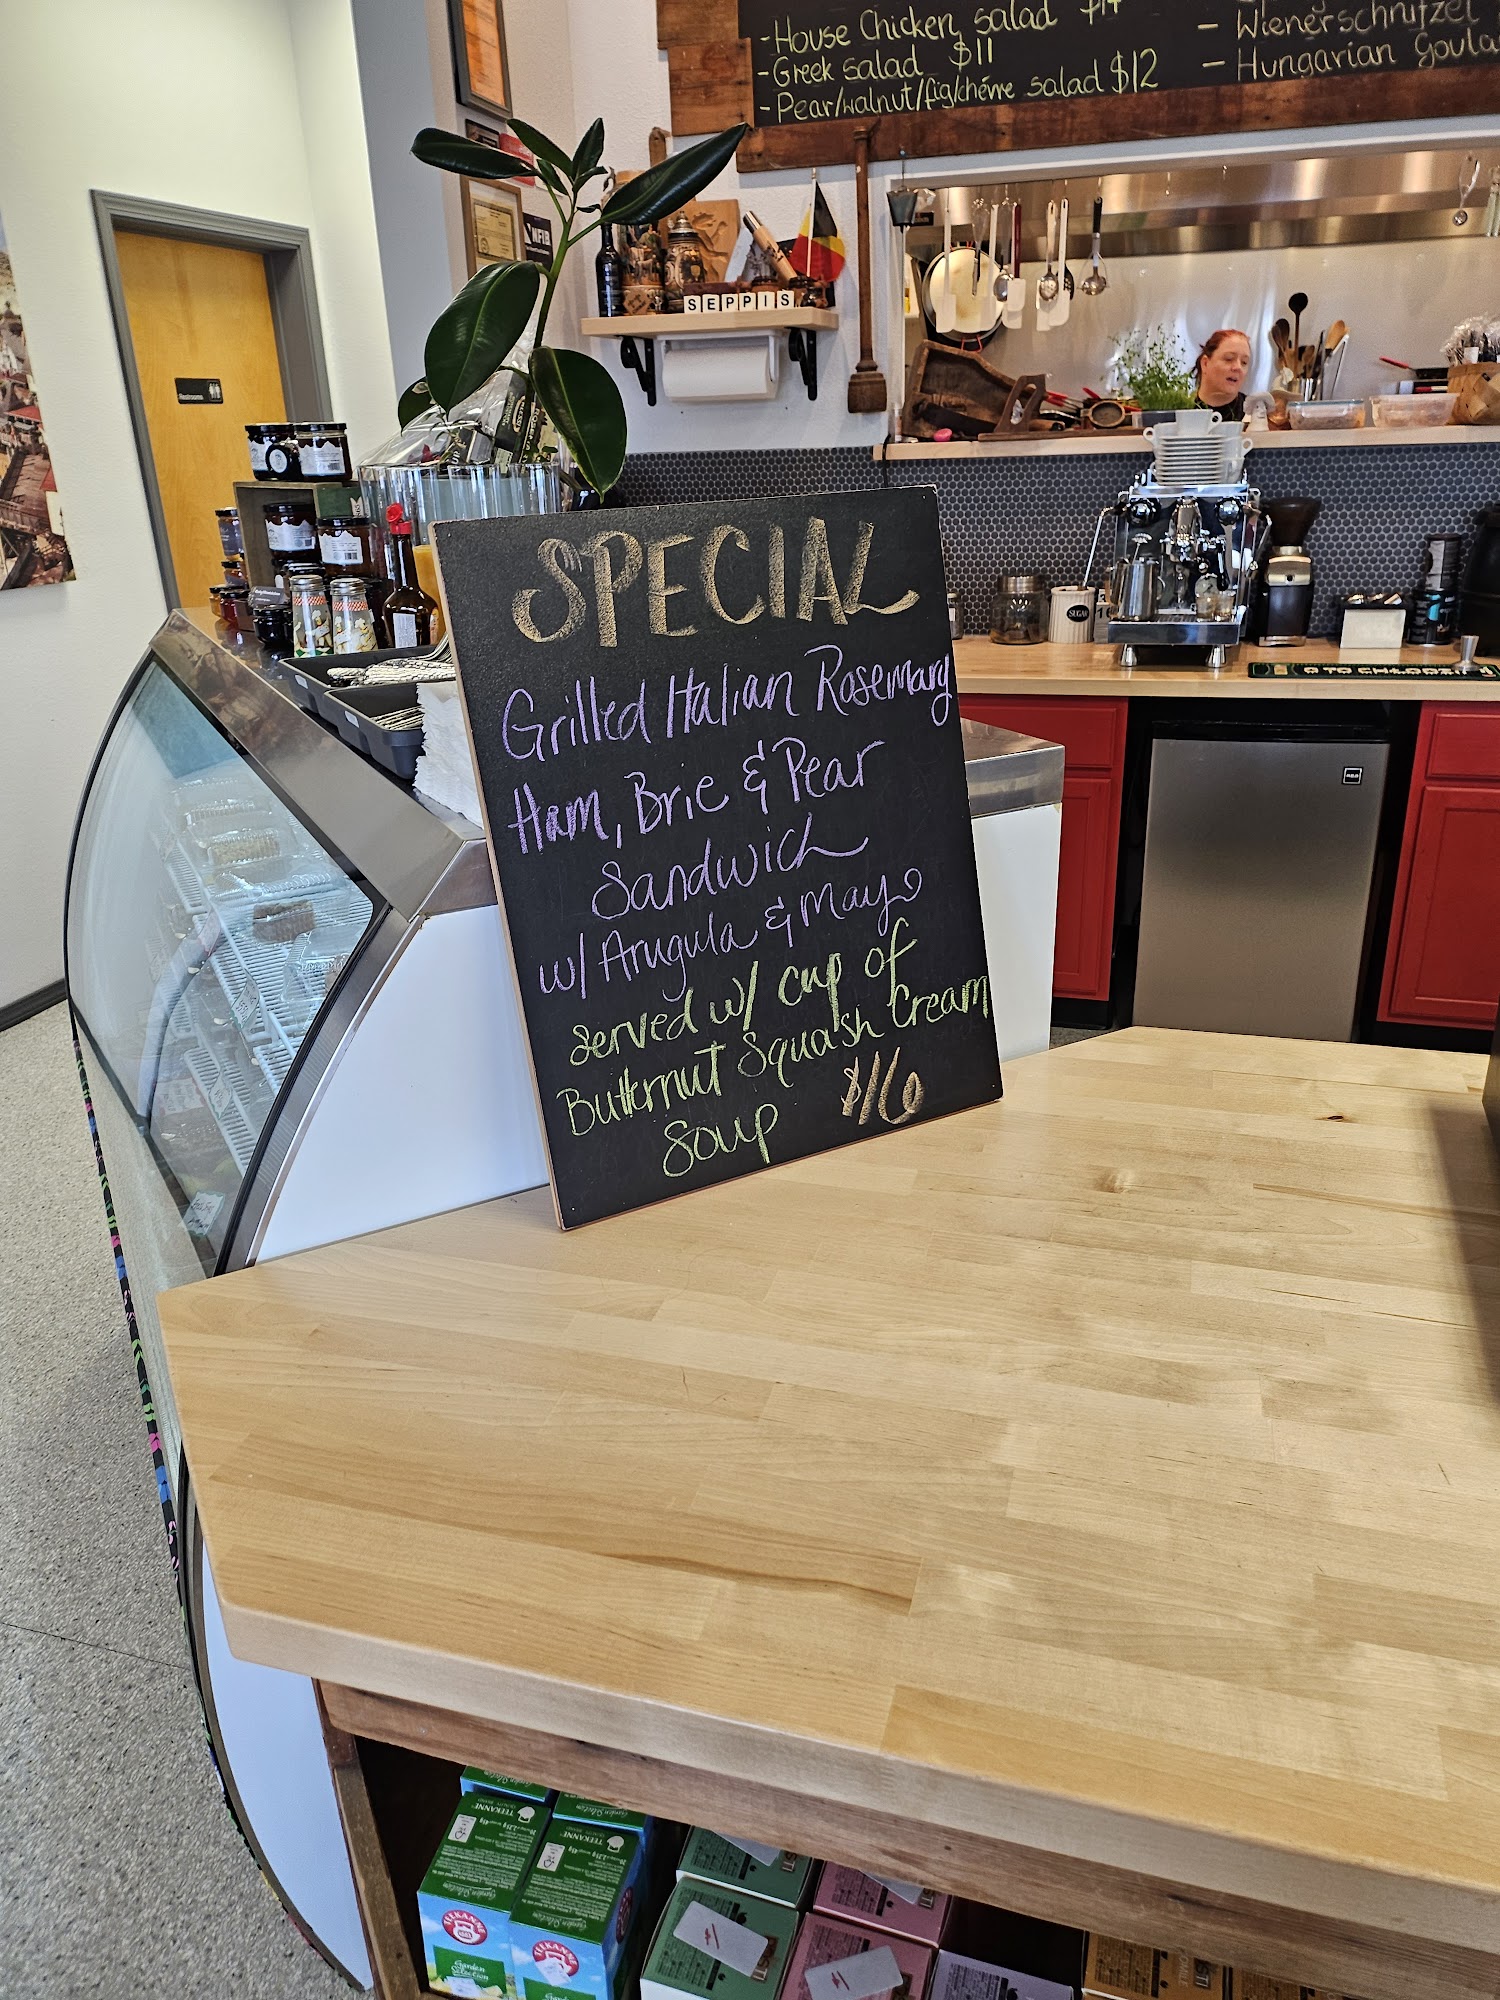 - House Chicken salad $14
- Greek salad $11
- Pear/walnut/fig/chévre salad $12
- Wienerschnitzel
- Hungarian
NFIB
SEPPIS
Restrooms
SUGAR
RCA
SPECIAL
Grilled Italian Rosemary
Ham, Brie & Pear
Sandwich
w/ Arugula & Mayo
served w/ cup of
Butternut Squash Cream
Soup $16
TEEKANNE
TEEKANNE
TEEKANNE
Garden
Selection
TEEKANNE